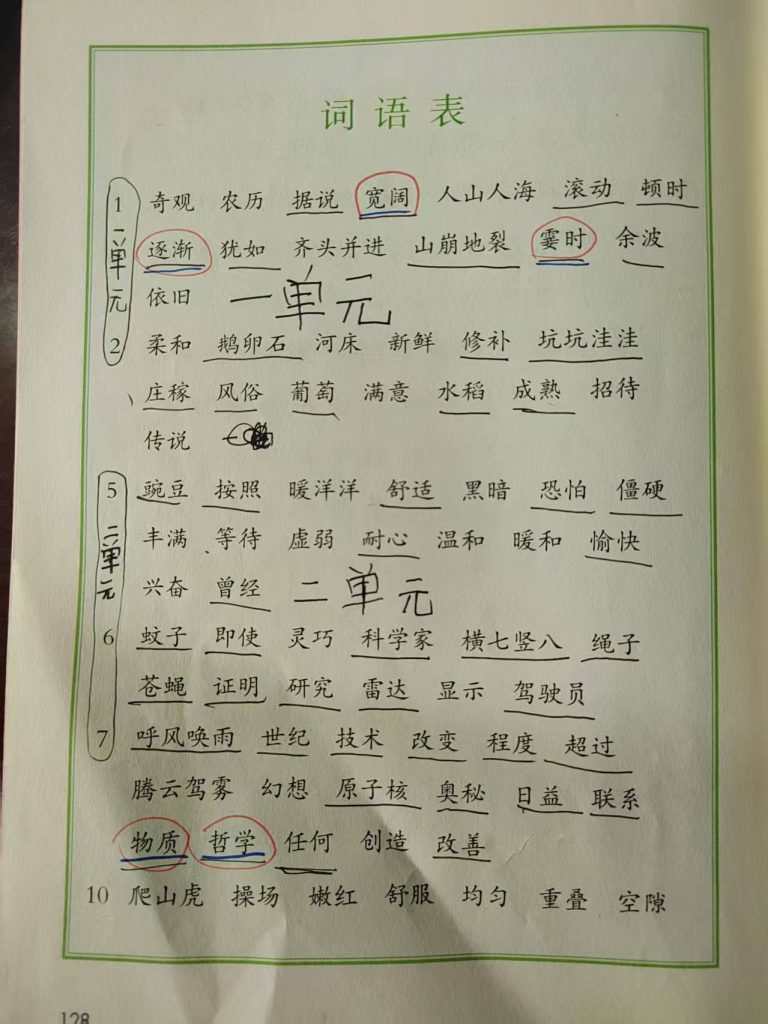 词语表
1 奇观 农历 据说 宽阔 人山人海 滚动 顿时
逐渐 犹如 齐头并进 山崩地裂 霎时 余波
依旧 一单元
一单元
2 柔和 鹅卵石 河床 新鲜 修补 坑坑洼洼
庄稼 风俗 葡萄 满意 水稻 成熟 招待
传说
5 豌豆 按照 暖洋洋 舒适 黑暗 恐怕 僵硬
二单元
丰满 等待 虚弱 耐心 温和 暖和 愉快
兴奋 曾经 二单元
6 蚊子 即使 灵巧 科学家 横七竖八 绳子
苍蝇 证明 研究 雷达 显示 驾驶员
7 呼风唤雨 世纪 技术 改变 程度 超过
腾云驾雾 幻想 原子核 奥秘 日益 联系
物质 哲学 任何 创造 改善
10 爬山虎 操场 嫩红 舒服 均匀 重叠 空隙
128